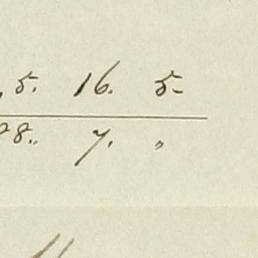 5. 16. 5.
28.. 7. "